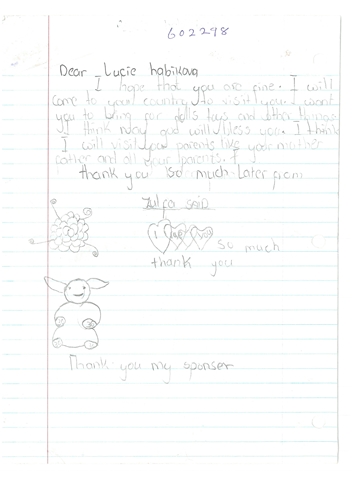 602298
Dear Lucie habikova
I hope that you are fine. I will
come to your country to visit you. I want
you to bring for dolls toys and other things
I think may god will bless you. I think
I will visit your parents like your mother
father and all your parents.
thank you so much. Later from
Zulfa said
I love you so much
thank you
Thank you my sponser